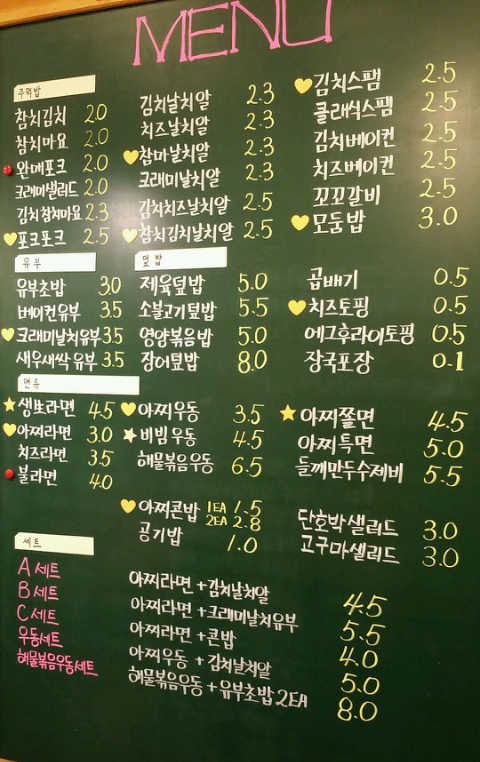 MENU
주먹밥
참치김치 2.0
참치마요 2.0
완매포크 2.0
크래미샐러드 2.0
김치참치마요 2.3
포크포크 2.5
김치날치알 2.3
치즈날치알 2.3
참마날치알 2.3
크래미날치알 2.3
김치치즈날치알 2.5
참치김치날치알 2.5
김치스팸 2.5
클래식스팸 2.5
김치베이컨 2.5
치즈베이컨 2.5
꼬꼬갈비 2.5
모둠밥 3.0
유부
유부초밥 3.0
베이컨유부 3.5
크래미날치유부 3.5
새우새싹유부 3.5
덮밥
제육덮밥 5.0
소불고기덮밥 5.5
영양볶음밥 5.0
장어덮밥 8.0
곱배기 0.5
치즈토핑 0.5
에그후라이토핑 0.5
장국포장 0.1
면류
생生라면 4.5
아찌라면 3.0
치즈라면 3.5
불라면 4.0
아찌우동 3.5
비빔우동 4.5
해물볶음우동 6.5
아찌쫄면 4.5
아찌특면 5.0
들깨만두수제비 5.5
아찌콘밥 1EA 1.5
2EA 2.8
공기밥 1.0
단호박샐러드 3.0
고구마샐러드 3.0
세트
A세트 아찌라면+김치날치알 4.5
B세트 아찌라면+크래미날치유부 5.5
C세트 아찌라면+콘밥 4.0
우동세트 아찌우동+김치날치알 5.0
해물볶음우동세트 해물볶음우동+유부초밥2EA 8.0